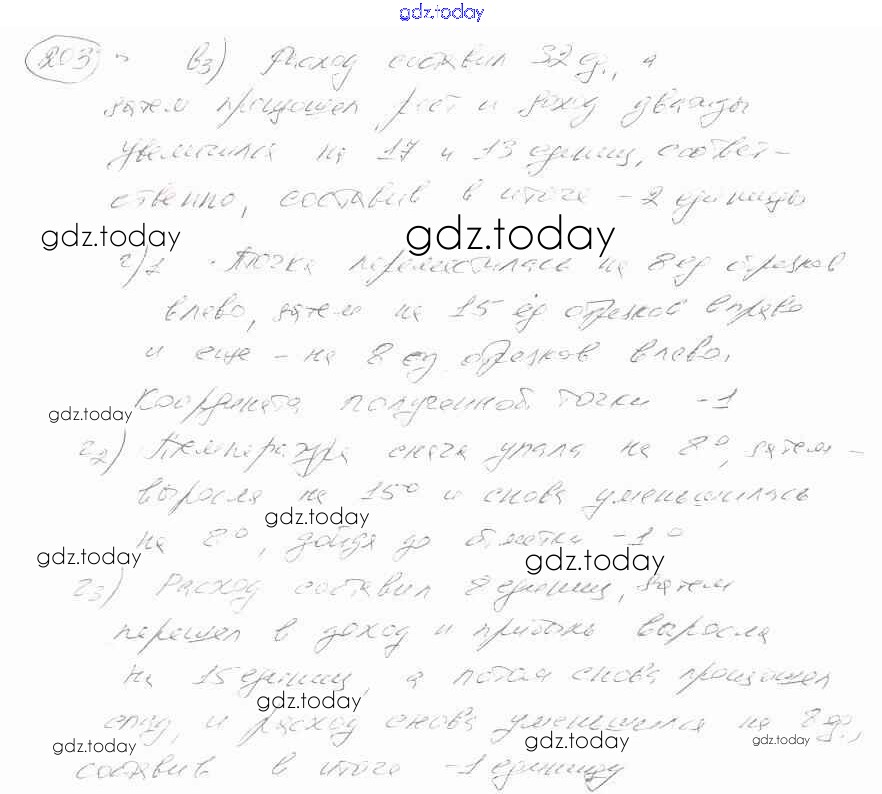 gdz.today
203 в3) Расход составил 32 ед., а
затем произошел рост и доход дважды
увеличился на 17 и 13 единиц, соответ-
ственно, составив в итоге -2 единицы
gdz.today gdz.today
г)1 Точка переместилась на 8 ед отрезков
влево, затем на 15 ед отрезков вправо
и еще - на 8 ед отрезков влево.
Координата полученной точки -1
gdz.today
г2) Температура упала на 8°, затем -
выросла на 15° и снова уменьшилась
gdz.today
на 8°, дойдя до отметки -1°
gdz.today gdz.today
г3) Расход составил 8 единиц, затем
перешел в доход и прибыль выросла
на 15 единиц, а потом снова произошел
gdz.today
спад, и расход снова уменьшился на 8 ед.,
gdz.today gdz.today gdz.today
составив в итоге -1 единицу